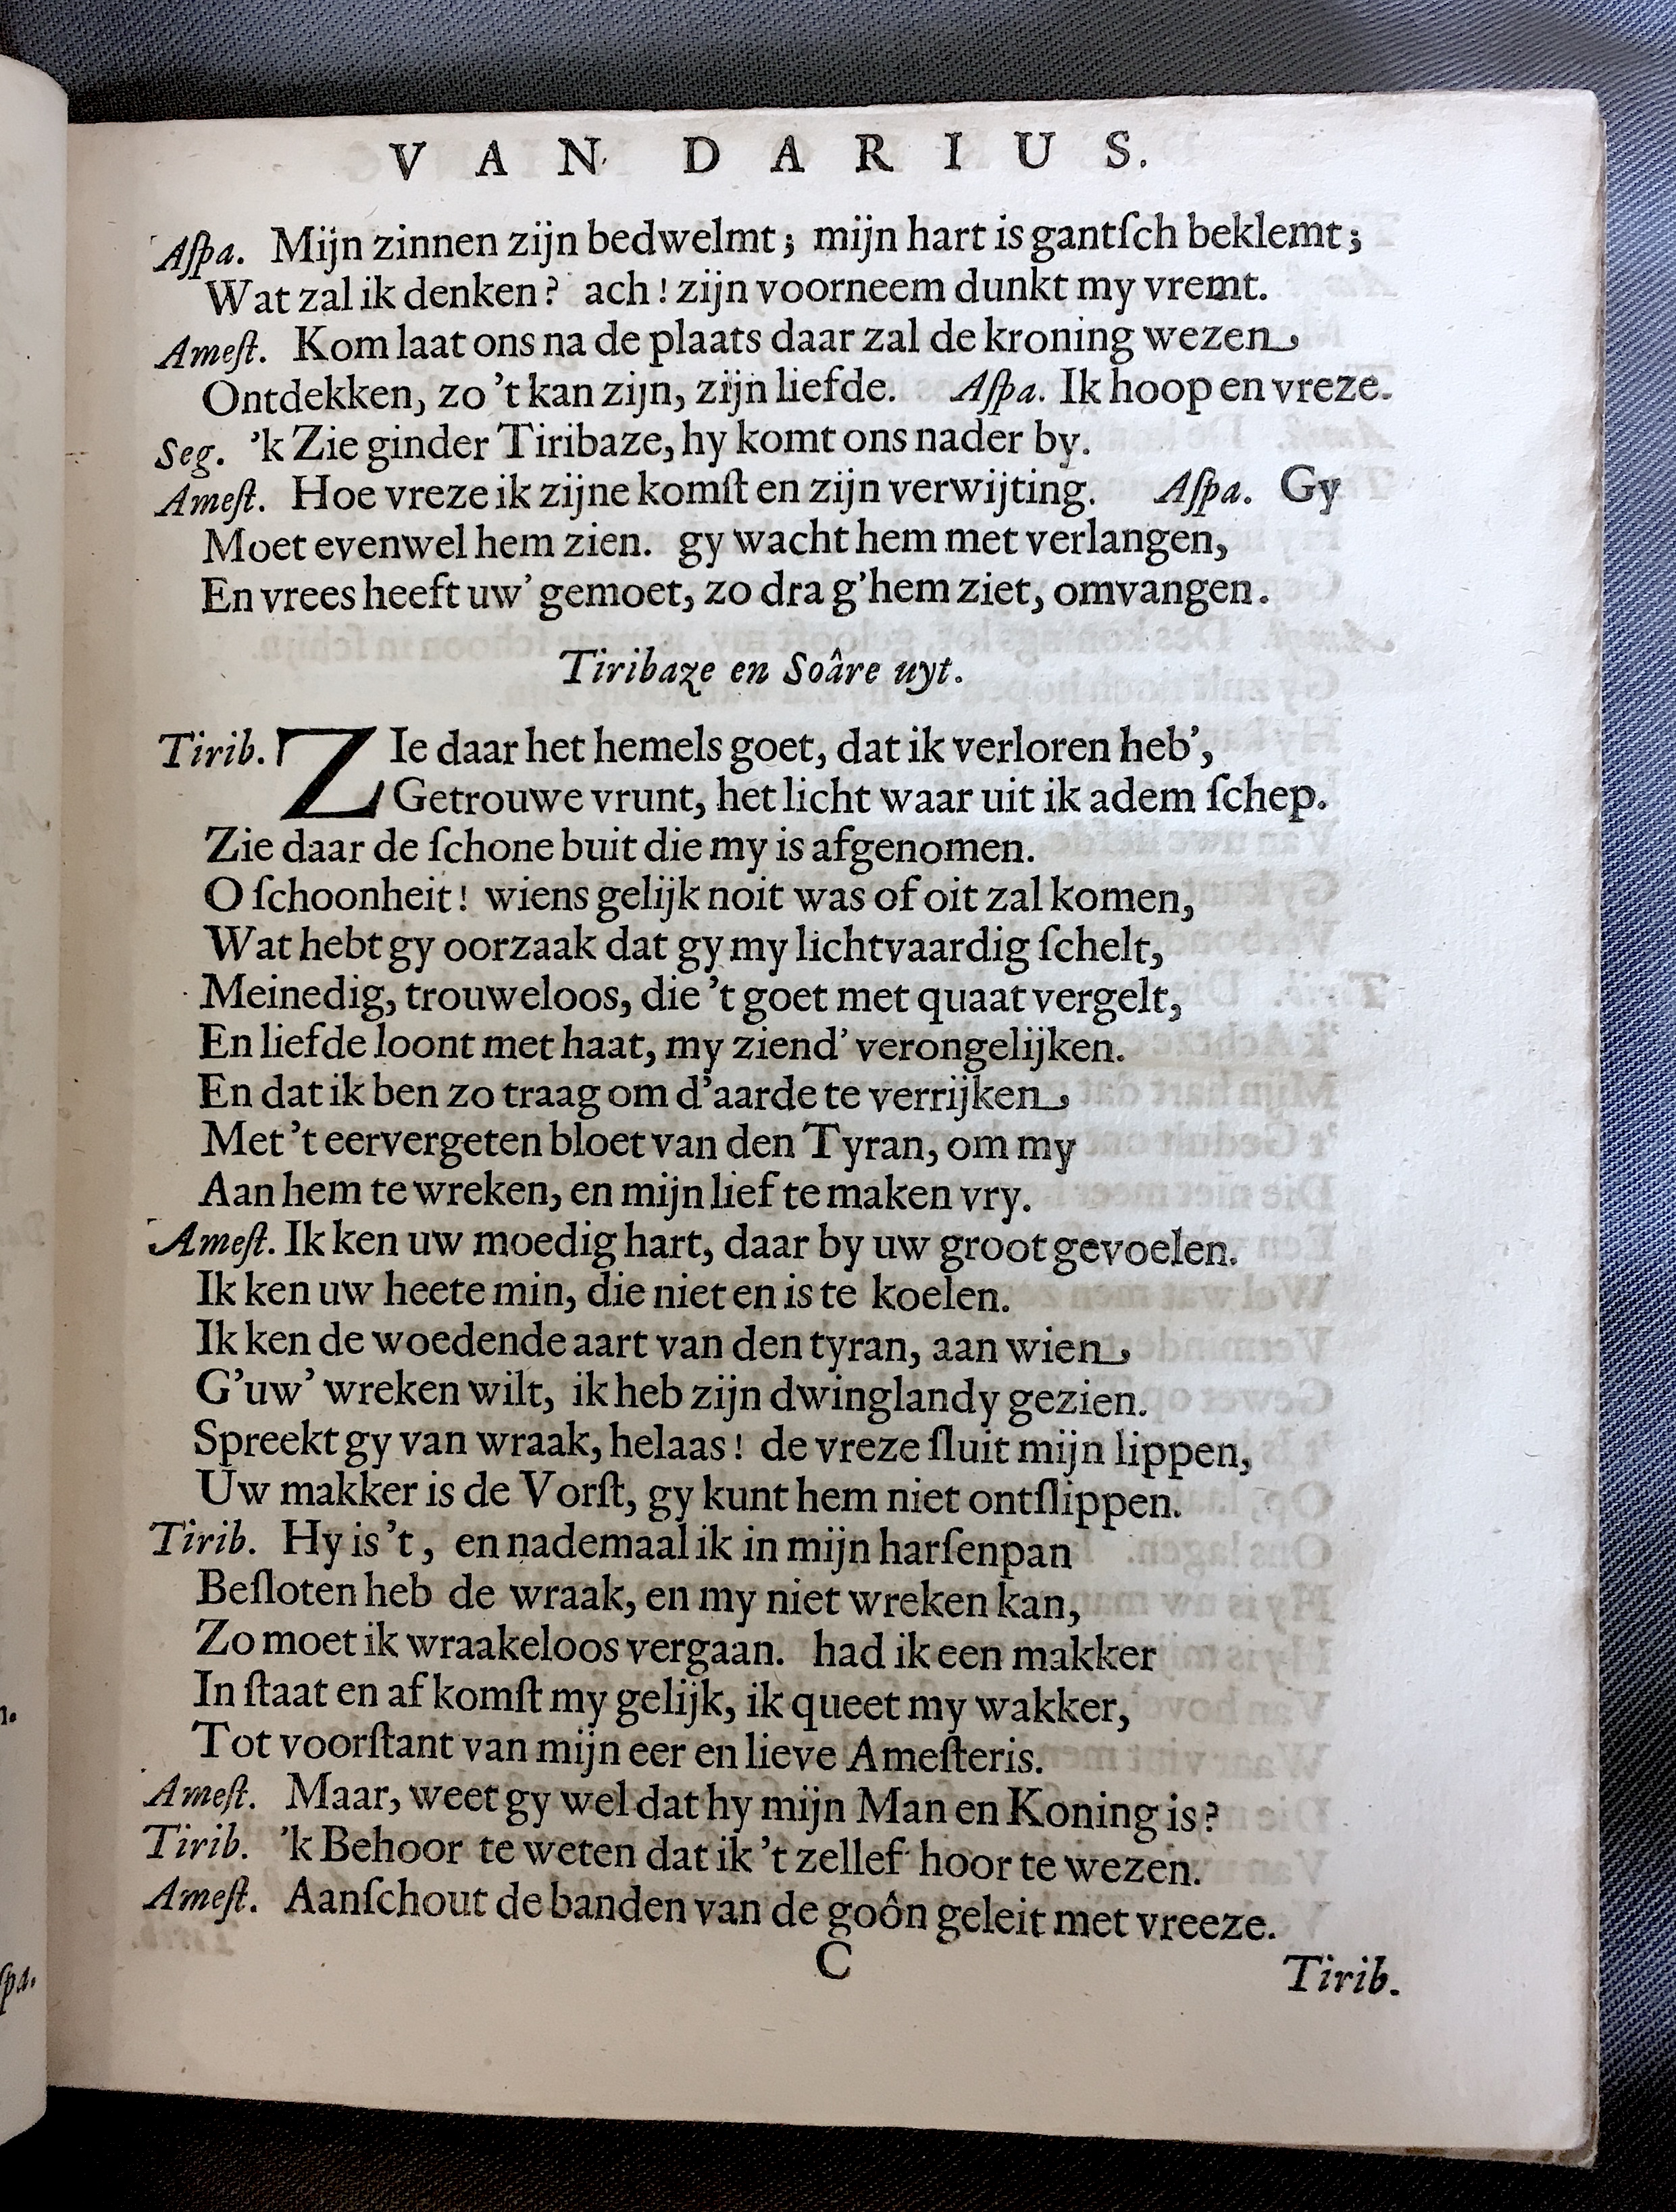 VAN DARIUS.
Aſpa. Mijn zinnen zijn bedwelmt; mijn hart is gantſch beklemt;
Wat zal ik denken? ach! zijn voorneem dunkt my vremt.
Ameſt. Kom laat ons na de plaats daar zal de kroning wezen
Ontdekken, zo 't kan zijn, zijn liefde. Aſpa. Ik hoop en vreze.
Seg. 'k Zie ginder Tiribaze, hy komt ons nader by.
Ameſt. Hoe vreze ik zijne komſt en zijn verwijting. Aſpa. Gy
Moet evenwel hem zien. gy wacht hem met verlangen,
En vrees heeft uw' gemoet, zo dra g'hem ziet, omvangen.
Tiribaze en Soâre uyt.
Tirib. ZIe daar het hemels goet, dat ik verloren heb',
Getrouwe vrunt, het licht waar uit ik adem ſchep.
Zie daar de ſchone buit die my is afgenomen.
O ſchoonheit! wiens gelijk noit was of oit zal komen,
Wat hebt gy oorzaak dat gy my lichtvaardig ſchelt,
Meinedig, trouweloos, die 't goet met quaat vergelt,
En liefde loont met haat, my ziend' verongelijken.
En dat ik ben zo traag om d'aarde te verrijken
Met 't eervergeten bloet van den Tyran, om my
Aan hem te wreken, en mijn lief te maken vry.
Ameſt. Ik ken uw moedig hart, daar by uw groot gevoelen.
Ik ken uw heete min, die niet en is te koelen.
Ik ken de woedende aart van den tyran, aan wien
G'uw' wreken wilt, ik heb zijn dwinglandy gezien.
Spreekt gy van wraak, helaas! de vreze ſluit mijn lippen,
Uw makker is de Vorſt, gy kunt hem niet ontſlippen.
Tirib. Hy is 't, en nademaal ik in mijn harſenpan
Beſloten heb de wraak, en my niet wreken kan,
Zo moet ik wraakeloos vergaan. had ik een makker
In ſtaat en af komſt my gelijk, ik queet my wakker,
Tot voorſtant van mijn eer en lieve Ameſteris.
Ameſt. Maar, weet gy wel dat hy mijn Man en Koning is?
Tirib. 'k Behoor te weten dat ik 't zellef hoor te wezen.
Ameſt. Aanſchout de banden van de goôn geleit met vreeze.
C
Tirib.